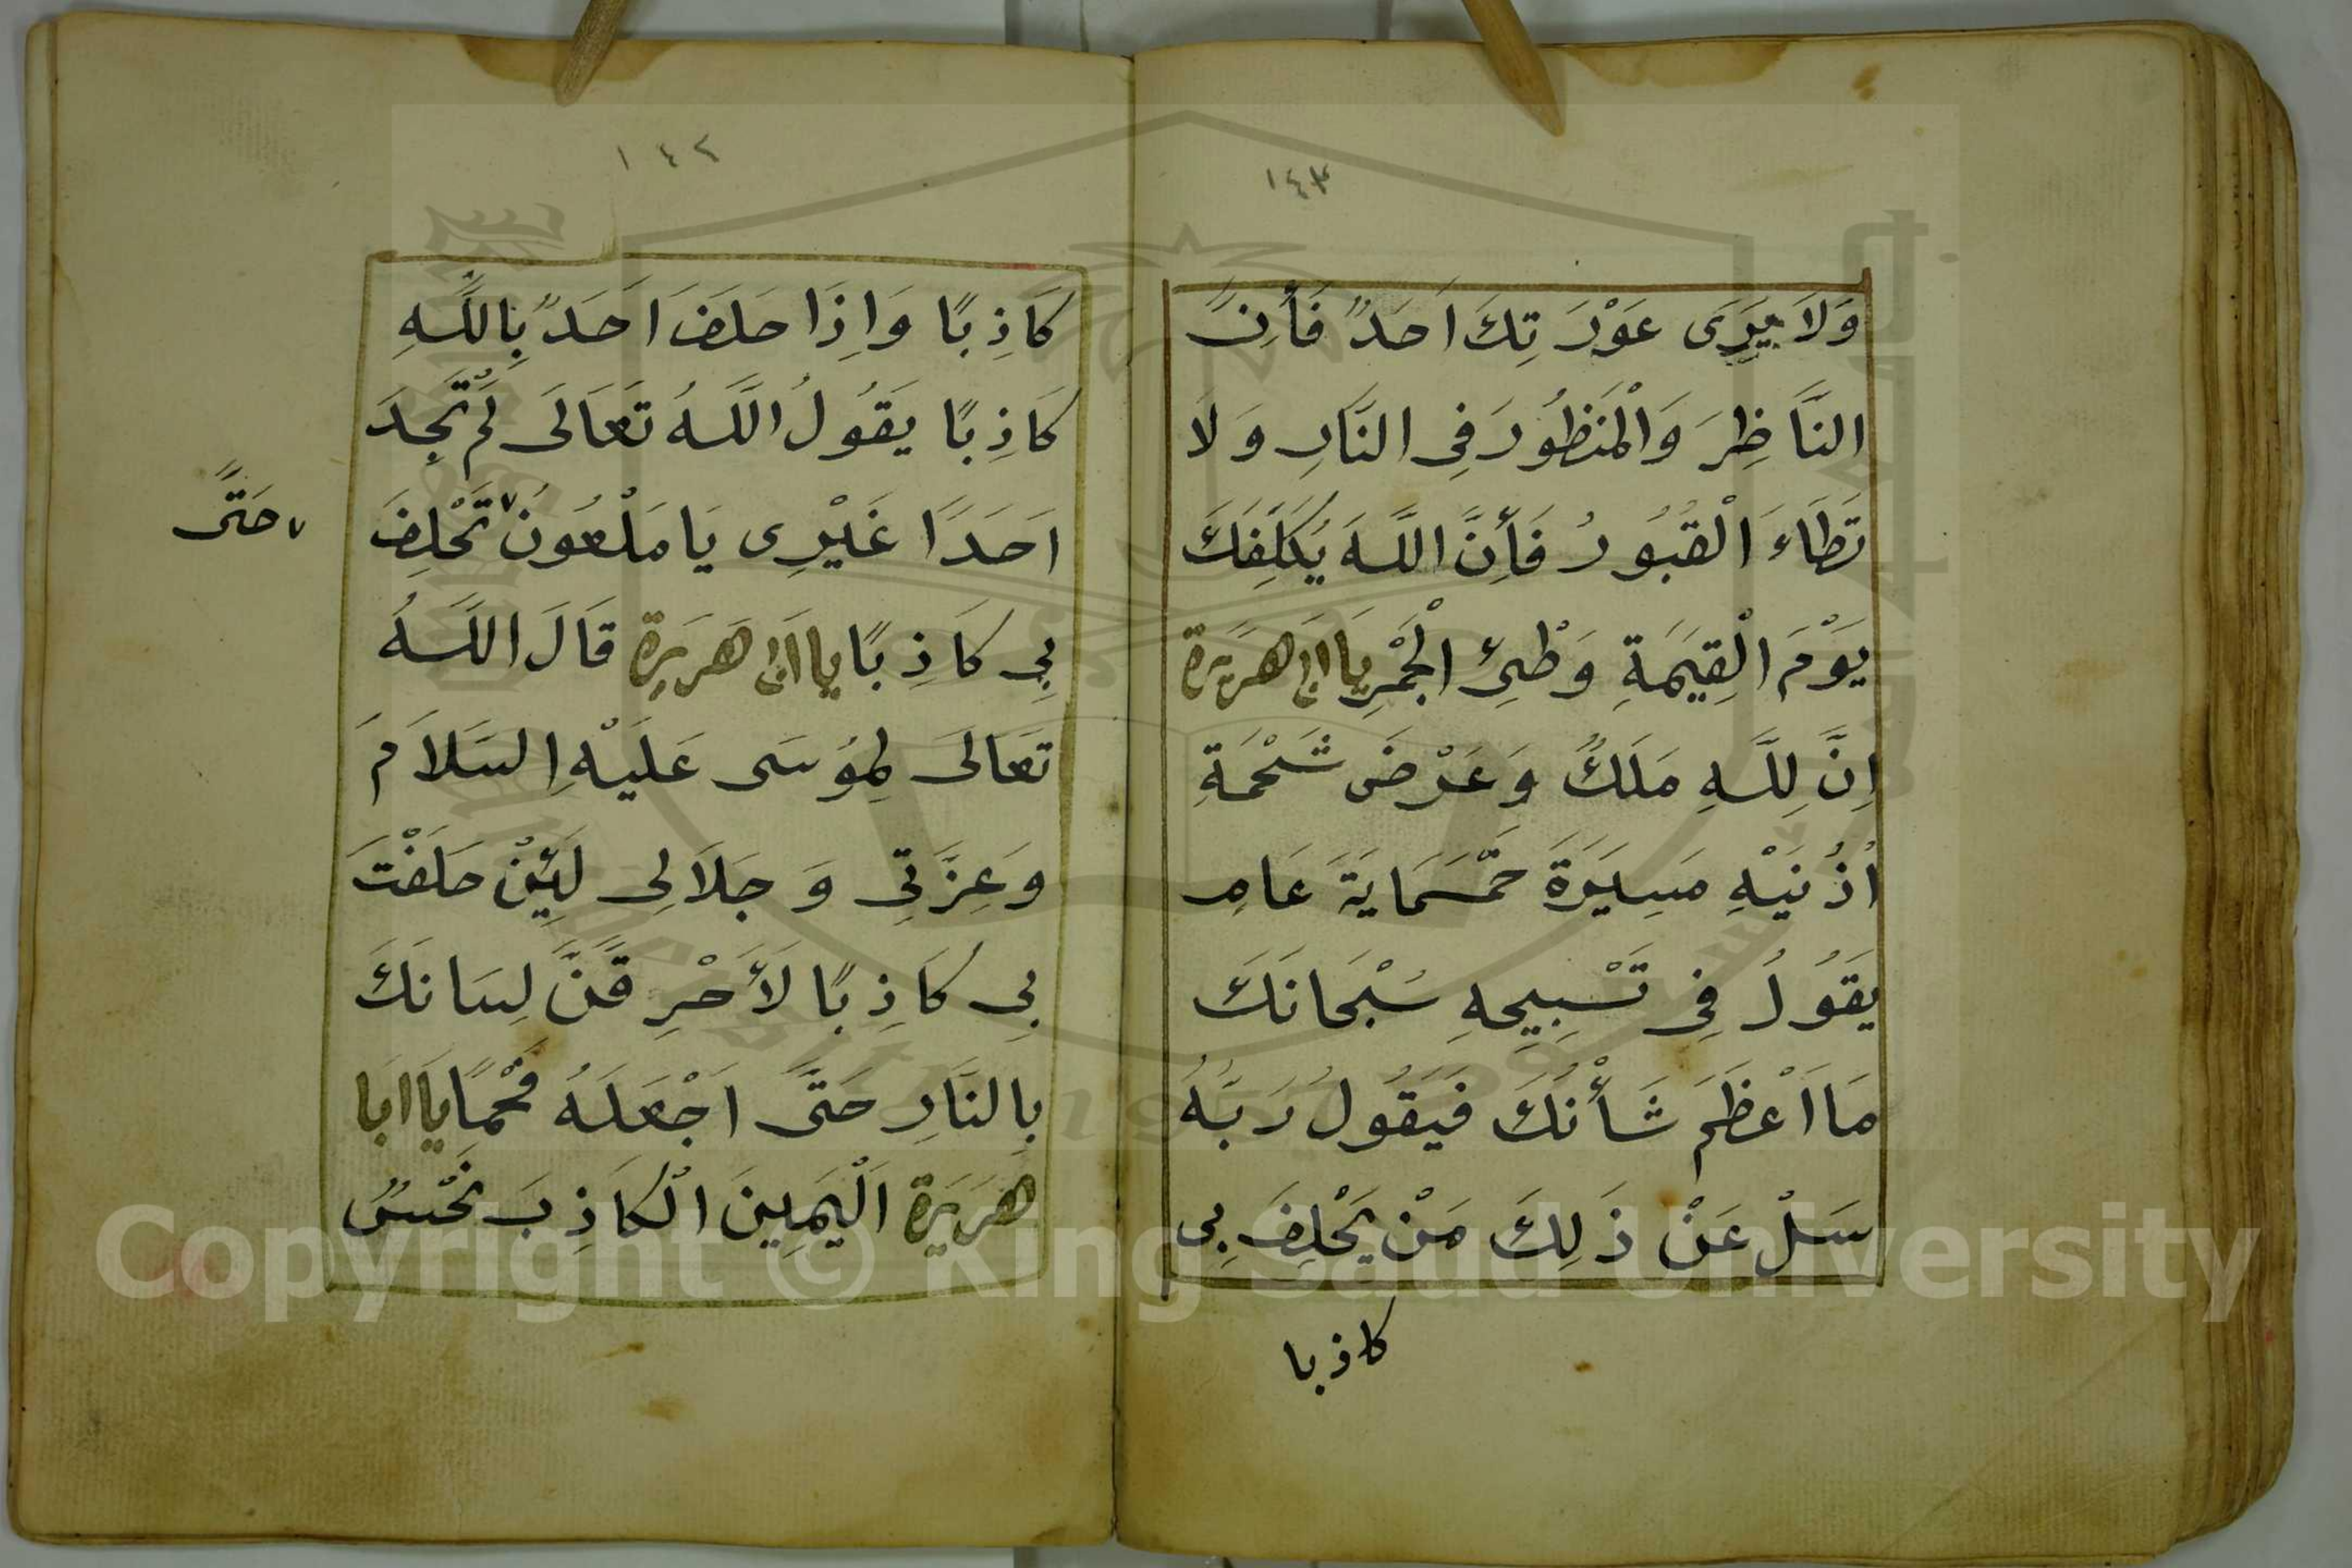 ١٤٣
وَلَا يَرَى عَوْرَتِكَ اَحَدٌ فَأِنَّ
النَّاظِرَ وَالْمَنْظُورَ فِي النَّارِ وَلَا
تَطَاءَ الْقُبُورُ فَأِنَّ اللَّهَ يُكَلِّفُكَ
يَوْمَ الْقِيَمَةِ وَطْئَ الْجَمْرِ يَا اَبَا هَرَيَرَة
اِنَّ لِلَّهِ مَلَكٌ وَعَرْضَ شَحْمَةِ
اُذُنَيْهِ مَسِيَرَةَ خَمْسَمَايَةَ عَامٍ
يَقُولُ فِي تَسْبِيحِهِ سُبْحَانَكَ
مَا اَعْظَمَ شَأْنُكَ فَيَقُولُ رَبَّهُ
سَلْ عَنْ ذَلِكَ مَنْ يَحْلِفَ بِي
كاذبا
١٤٢
كَاذِبًا وَاِذَا حَلَفَ اَحَدٌ بِاللَّهِ
كَاذِبًا يَقُولُ اللَّهُ تَعَالَى لَمْ تَجِدَ
اَحَدًا غَيْرِى يَا مَلْعُونُ ٧ تَحْلِفَ
٧ حَتَّى
بِي كَاذِبًا يا اَبا هَرَيرَة قَالَ اللَّهُ
تَعَالَى لِمُوسَى عَلَيْهِ السَّلَامَ
وَعِزَّتِي وَجَلَالِى لَئِنْ حَلَفْتَ
بِى كَاذِبًا لَأَحْرِقَنَّ لِسَانَكَ
بِالنَّارِ حَتَّى اَجْعَلَهُ فَحْمًا يَا ابَا
هَرَيَرَة اَلْيَمِينَ الْكَاذِبَ نَجْسٌ
Copyright © King Saud University